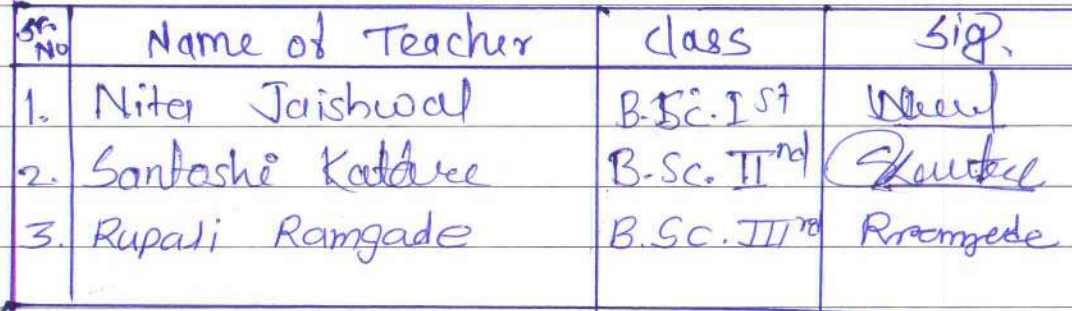 Sr. No Name of Teacher class sig.
1. Nita Jaishwal B.Sc. Ist
2. Santoshi Katare B.Sc. IInd
3. Rupali Ramgade B.Sc. IIIrd Rramgede